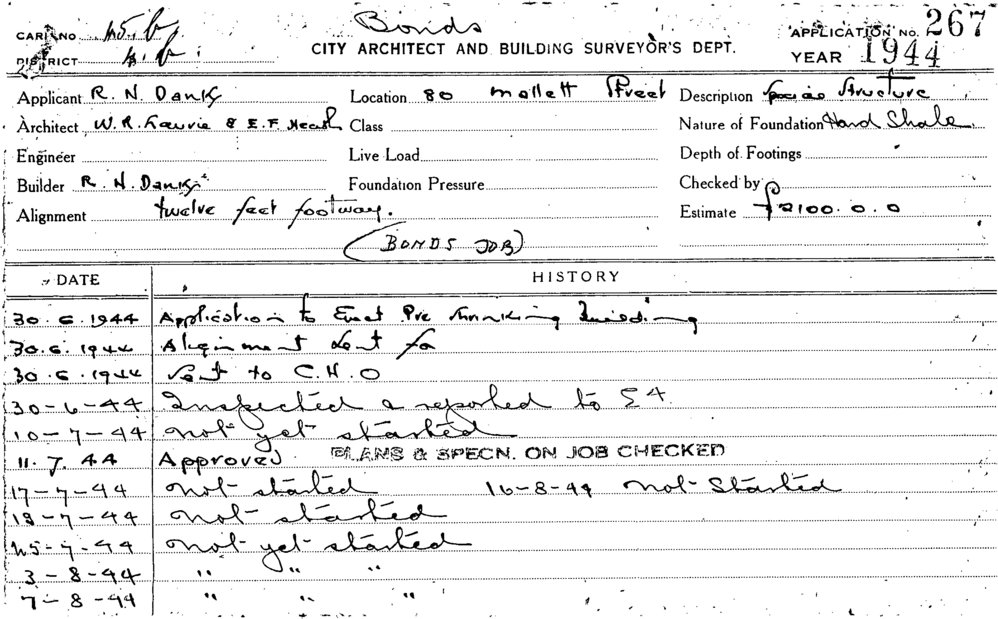 Bonds
CARD NO. 45.b
CITY ARCHITECT AND BUILDING SURVEYOR'S DEPT.
APPLICATION NO. 267
DISTRICT
YEAR 1944
Applicant R. N. Danks Location 80 Mallett Street Description Special Structure
Architect W. R. Laurie & E. F. Heath Class Nature of Foundation Hard Shale
Engineer Live Load Depth of Footings
Builder R. N. Danks Foundation Pressure Checked by
Alignment twelve feet footway. Estimate £2100.0.0
(BONDS JOB)
DATE HISTORY
30.6.1944 Application to Erect Pre shrinking Building
30.6.1944 Alignment sent for
30.6.1944 Sent to C.H.O
30-6-44 Inspected & reported to
10-7-44 Not yet started
11.7.44 Approved PLANS & SPECN. ON JOB CHECKED
17-7-44 Not started 16-8-44 Not Started
18-7-44 Not started
25-7-44 Not yet started
3-8-44 " " "
7-8-44 " " "